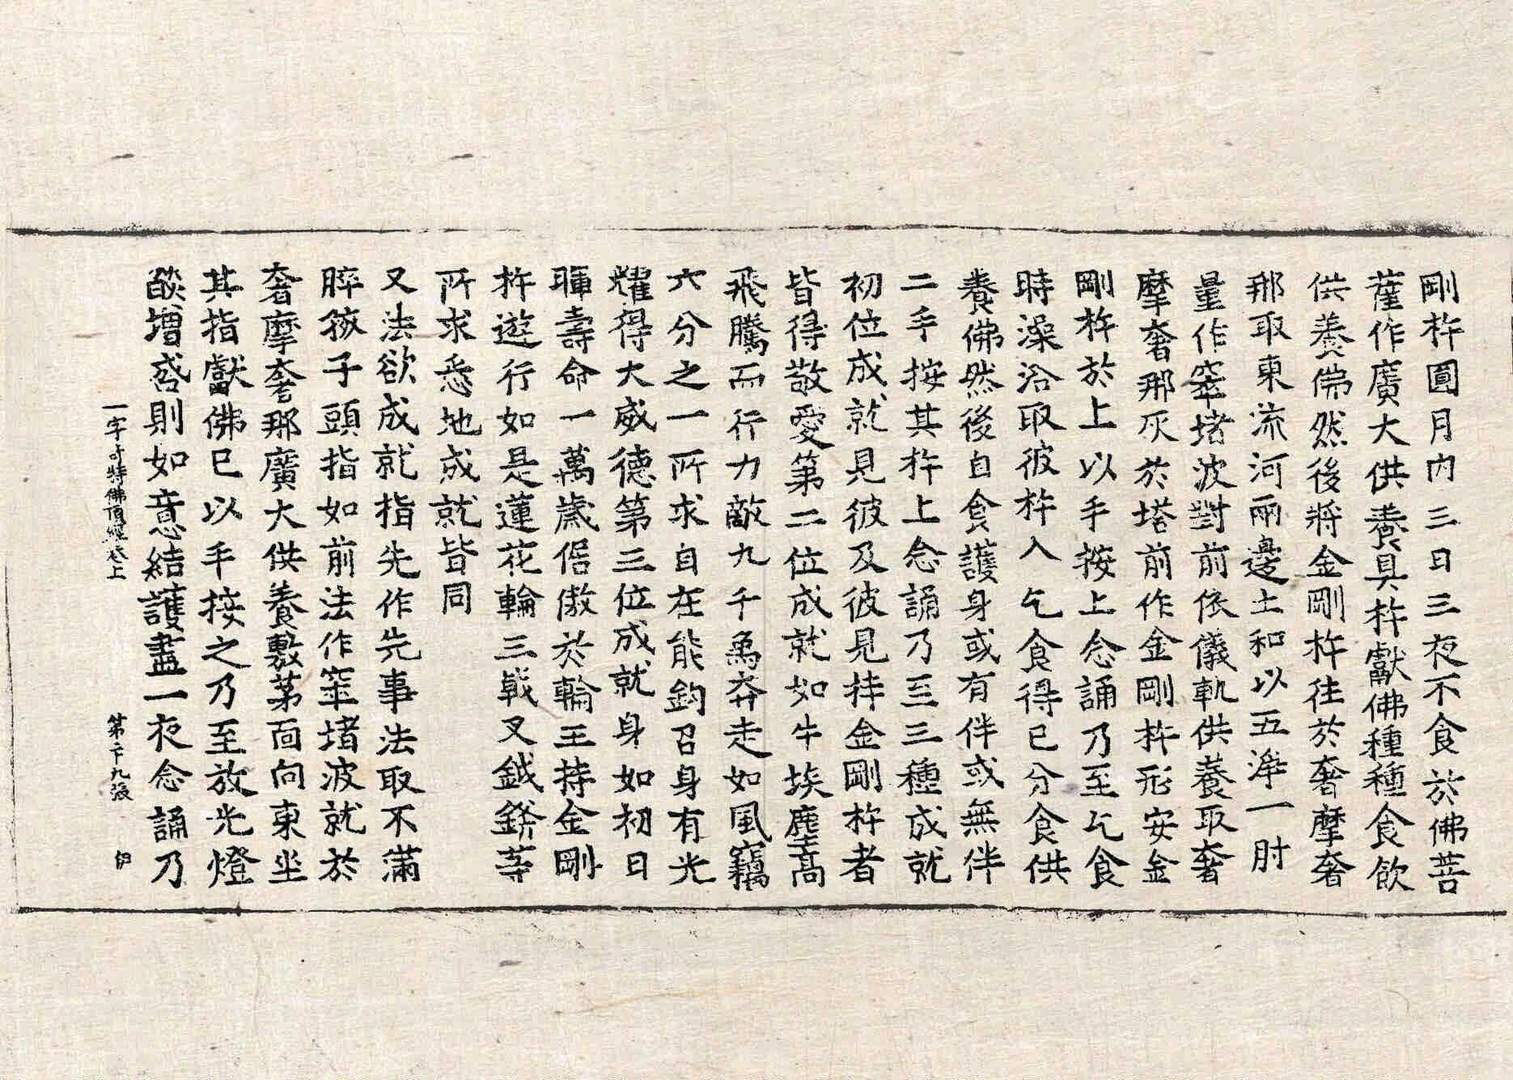 剛杵圓月內三日三夜不食於佛菩
薩作廣大供養具杵獻佛種種食飲
供養佛然後將金剛杵往於奢摩奢
那取東流河兩邊土和以五淨一肘
量作窣堵波對前依儀軌供養取奢
摩奢那灰於塔前作金剛杵形安金
剛杵於上以手按上念誦乃至乞食
時澡浴取彼杵入乞食得已分食供
養佛然後自食護身或有伴或無伴
二手按其杵上念誦乃至三種成就
初位成就見彼及彼見持金剛杵者
皆得敬愛第二位成就如牛埃塵高
飛騰而行力敵九千象奔走如風竊
六分之一所求自在能鈎召身有光
耀得大威德第三位成就身如初日
暉壽命一萬歲倨傲於輪王持金剛
杵遊行如是蓮花輪三戟叉鉞鎊等
所求悉地成就皆同
又法欲成就指先作先事法取不滿
脺孩子頭指如前法作窣堵波就於
奢摩奢那廣大供養敷茅面向東坐
其指獻佛已以手按之乃至放光燈
燄增盛則如意結護盡一夜念誦乃
一字奇特佛頂經卷上 第二十九張 伊